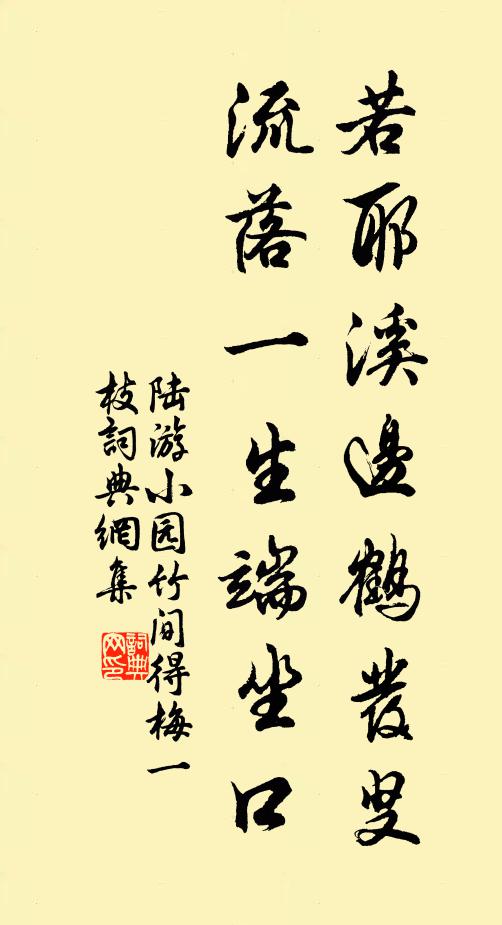 若耶溪邊鶴發叟
流落一生端坐口
陆游小园竹间得梅一
枝詞典網集
詞典网印